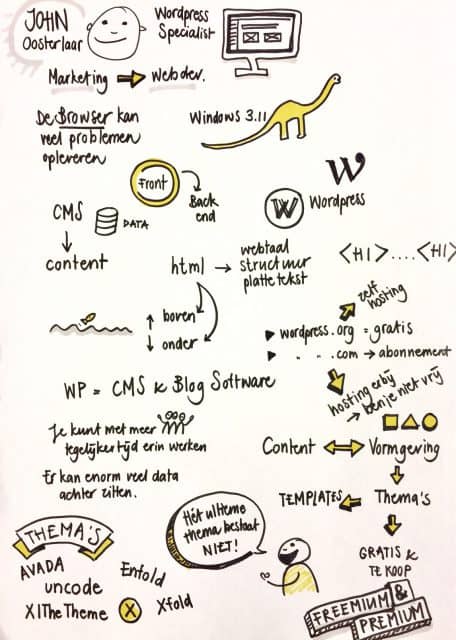 JOHN
Oosterlaar
Wordpress
Specialist
Marketing → web dev.
De Browser kan
veel problemen
opleveren
Windows 3.11
Front
Back
end
W
W
Wordpress
CMS
DATA
content
html → webtaal
structuur
platte tekst
<H1>....<H1>
↑ boven
↓ onder
zelf
hosting
wordpress.org = gratis
. - . .com → abonnement
hosting erbij
→ ben je niet vrij
WP = CMS & Blog Software
Je kunt met meer
tegelijkertijd erin werken
Er kan enorm veel data
achter zitten.
Content
Vormgeving
TEMPLATES
Thema's
GRATIS &
TE KOOP
FREEMIUM &
PREMIUM
Hét ultieme
thema bestaat
NIET!
THEMA'S
AVADA
Enfold
uncode
X|The Theme
X
Xfold